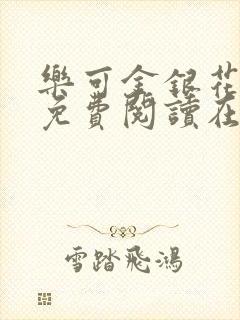 樂可金銀花
免費閱讀在
雪踏飛鴻